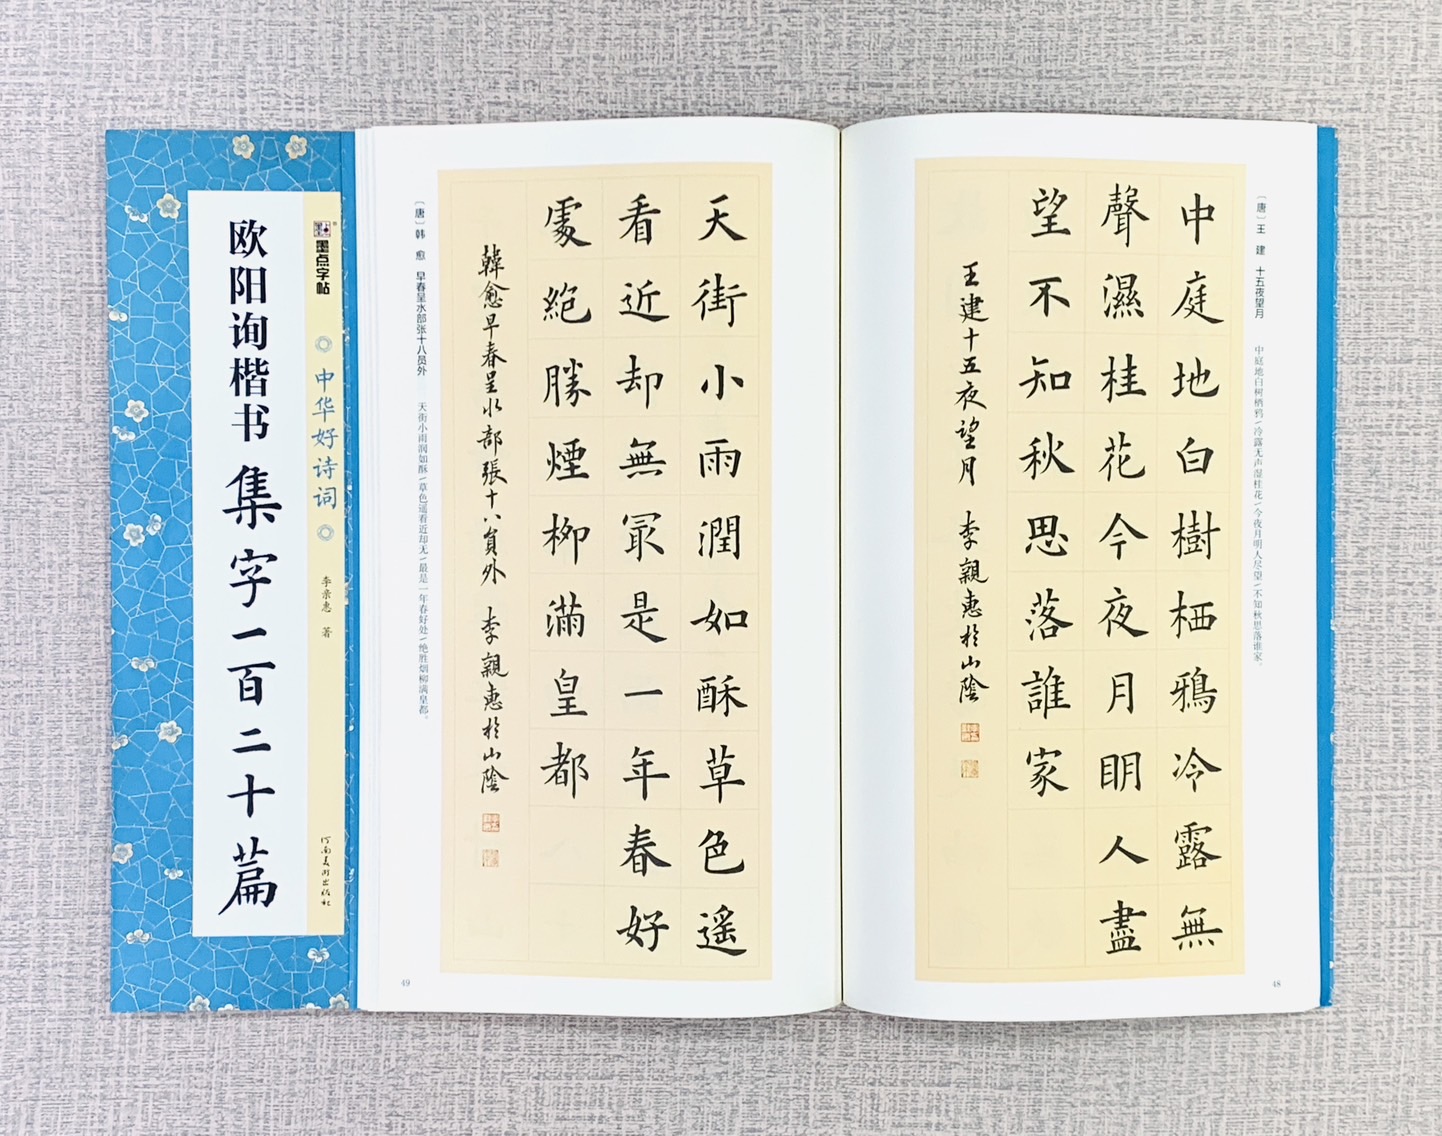 墨点字帖
中华好诗词
欧阳询楷书集字一百二十篇
李亲惠 著
河南美术出版社
〔唐〕王建 十五夜望月
中庭地白树栖鸦/冷露无声湿桂花/今夜月明人尽望/不知秋思落谁家。
中庭地白樹栖鴉冷露無
聲濕桂花今夜月明人盡
望不知秋思落誰家
王建十五夜望月 李親惠於山陰
48
〔唐〕韩愈 早春呈水部张十八员外
天街小雨润如酥/草色遥看近却无/最是一年春好处/绝胜烟柳满皇都。
天街小雨潤如酥草色遥
看近却無冣是一年春好
處絕勝煙柳滿皇都
韓愈早春呈水部張十八員外 李親惠於山陰
49